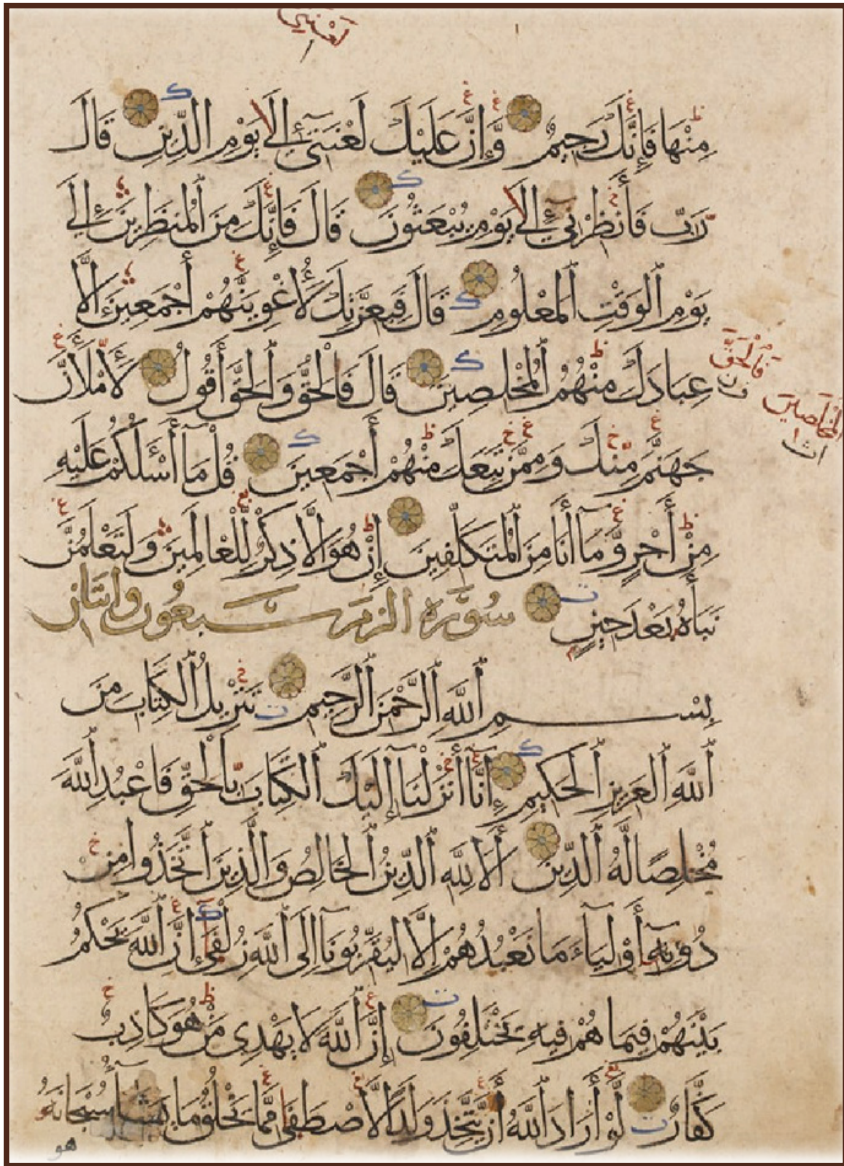 لعنتي
مِنْهَا فَإِنَّكَ رَجِيمٌ وَّإِنَّ عَلَيْكَ لَعْنَتِي إِلَى يَوْمِ الدِّينِ قَالَ
رَبِّ فَأَنْظِرْنِي إِلَى يَوْمِ يُبْعَثُونَ قَالَ فَإِنَّكَ مِنَ الْمُنْظَرِينَ إِلَى
يَوْمِ الْوَقْتِ الْمَعْلُومِ قَالَ فَبِعِزَّتِكَ لَأُغْوِيَنَّهُمْ أَجْمَعِينَ إِلَّا
عِبَادَكَ مِنْهُمُ الْمُخْلَصِينَ قَالَ فَالْحَقُّ وَالْحَقَّ أَقُولُ لَأَمْلَأَنَّ
فَالْحَقُّ
المخلصين
جَهَنَّمَ مِنْكَ وَمِمَّنْ تَبِعَكَ مِنْهُمْ أَجْمَعِينَ قُلْ مَا أَسْئَلُكُمْ عَلَيْهِ
مِنْ أَجْرٍ وَّمَا أَنَا مِنَ الْمُتَكَلِّفِينَ إِنْ هُوَ إِلَّا ذِكْرٌ لِّلْعَالَمِينَ وَلَتَعْلَمُنَّ
نَبَأَهُ بَعْدَ حِينٍ سورة الزمر سبعون واثنان
بِسْمِ اللَّهِ الرَّحْمَنِ الرَّحِيمِ تَنْزِيلُ الْكِتَابِ مِنَ
اللَّهِ الْعَزِيزِ الْحَكِيمِ إِنَّا أَنْزَلْنَا إِلَيْكَ الْكِتَابَ بِالْحَقِّ فَاعْبُدِ اللَّهَ
مُخْلِصًا لَّهُ الدِّينَ أَلَا لِلَّهِ الدِّينُ الْخَالِصُ وَالَّذِينَ اتَّخَذُوا مِنْ
دُونِهِ أَوْلِيَاءَ مَا نَعْبُدُهُمْ إِلَّا لِيُقَرِّبُونَا إِلَى اللَّهِ زُلْفَى إِنَّ اللَّهَ يَحْكُمُ
بَيْنَهُمْ فِيمَا هُمْ فِيهِ يَخْتَلِفُونَ إِنَّ اللَّهَ لَا يَهْدِي مَنْ هُوَ كَاذِبٌ
كَفَّارٌ لَّوْ أَرَادَ اللَّهُ أَنْ يَّتَّخِذَ وَلَدًا لَّاصْطَفَى مِمَّا يَخْلُقُ مَا يَشَاءُ سُبْحَانَهُ
هو